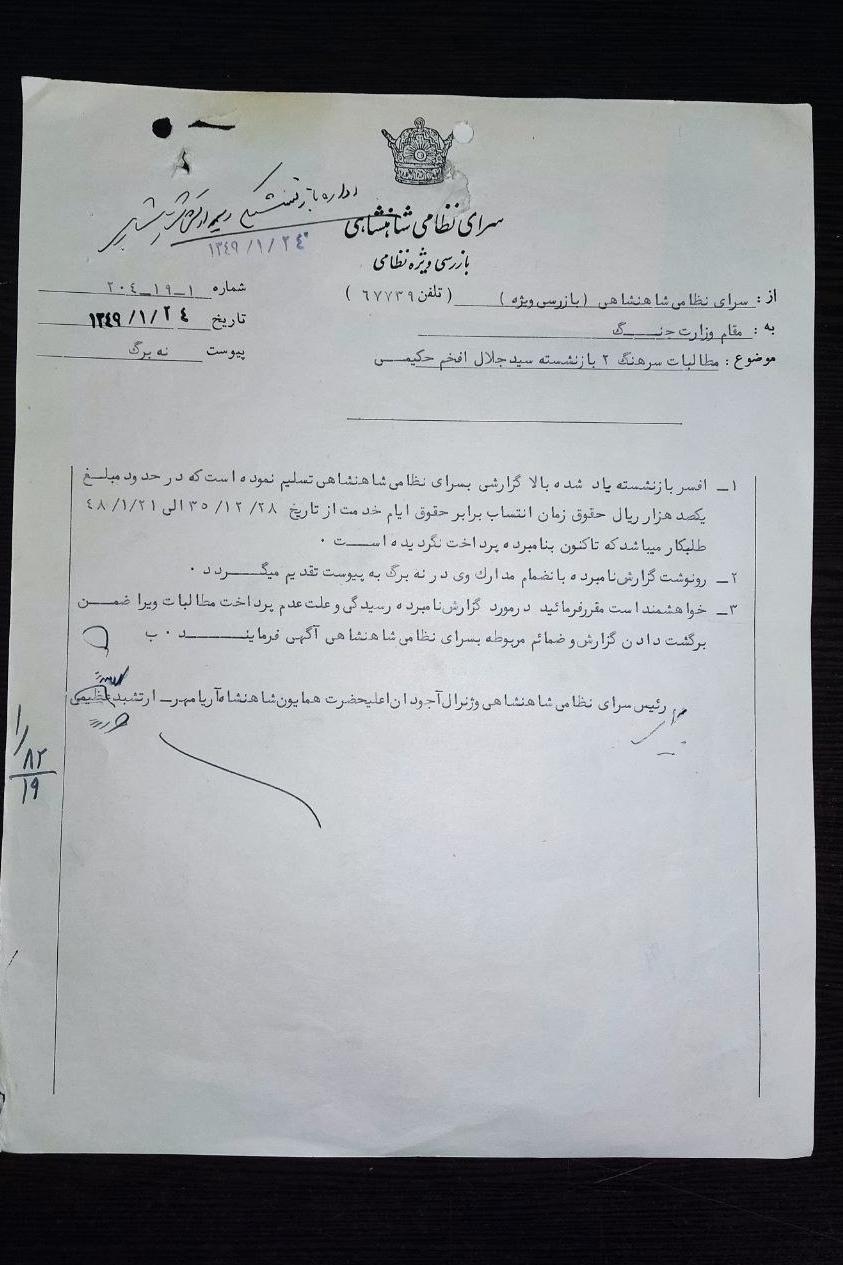 اداره بازنشستگی
۱۳۴۹/۱/۲۴
سرای نظامی شاهنشاهی
بازرسی ویژه نظامی
شماره ۱_۱۹_۲۰۴
تاریخ ۱۳۴۹/۱/۲۴
پیوست نه برگ
از : سرای نظامی شاهنشاهی (بازرسی ویژه) (تلفن ۶۷۷۳۹)
به : مقام وزارت جنگ
موضوع : مطالبات سرهنگ ۲ بازنشسته سید جلال افخم حکیمی
۱_ افسر بازنشسته یاد شده بالا گزارشی بسرای نظامی شاهنشاهی تسلیم نموده است که در حدود مبلغ
یکصد هزار ریال حقوق زمان انتساب برابر حقوق ایام خدمت از تاریخ ۲۸/۱۲/۳۵ الی ۴۸/۱/۲۱
طلبکار میباشد که تاکنون بنامبرده پرداخت نگردیده است .
۲_ رونوشت گزارش نامبرده با نضمام مدارک وی در نه برگ به پیوست تقدیم میگردد .
۳_ خواهشمند است مقرر فرمائید در مورد گزارش نامبرده رسیدگی و علت عدم پرداخت مطالبات ویرا ضمن
برگشت دادن گزارش و ضمائم مربوطه بسرای نظامی شاهنشاهی آگهی فرمایند . ب
رئیس سرای نظامی شاهنشاهی و ژنرال آجودان اعلیحضرت همایون شاهنشاه آریامهر _ ارتشبد عظیمی
۸۲
۱۹